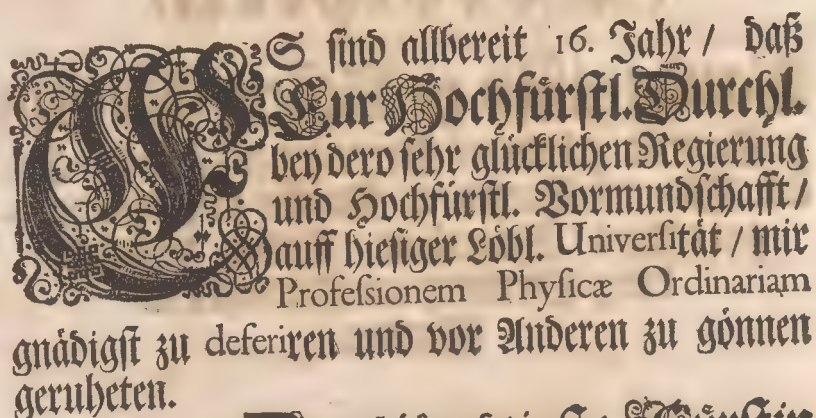 ES sind allbereit 16. Jahr / daß
Eur Hochfürstl. Durchl.
bey dero sehr glücklichen Regierung
und Hochfürstl. Vormundschafft /
auff hiesiger Löbl. Universität / mir
Professionem Physicæ Ordinariam
gnädigst zu deferiren und vor Anderen zu gönnen
geruheten.